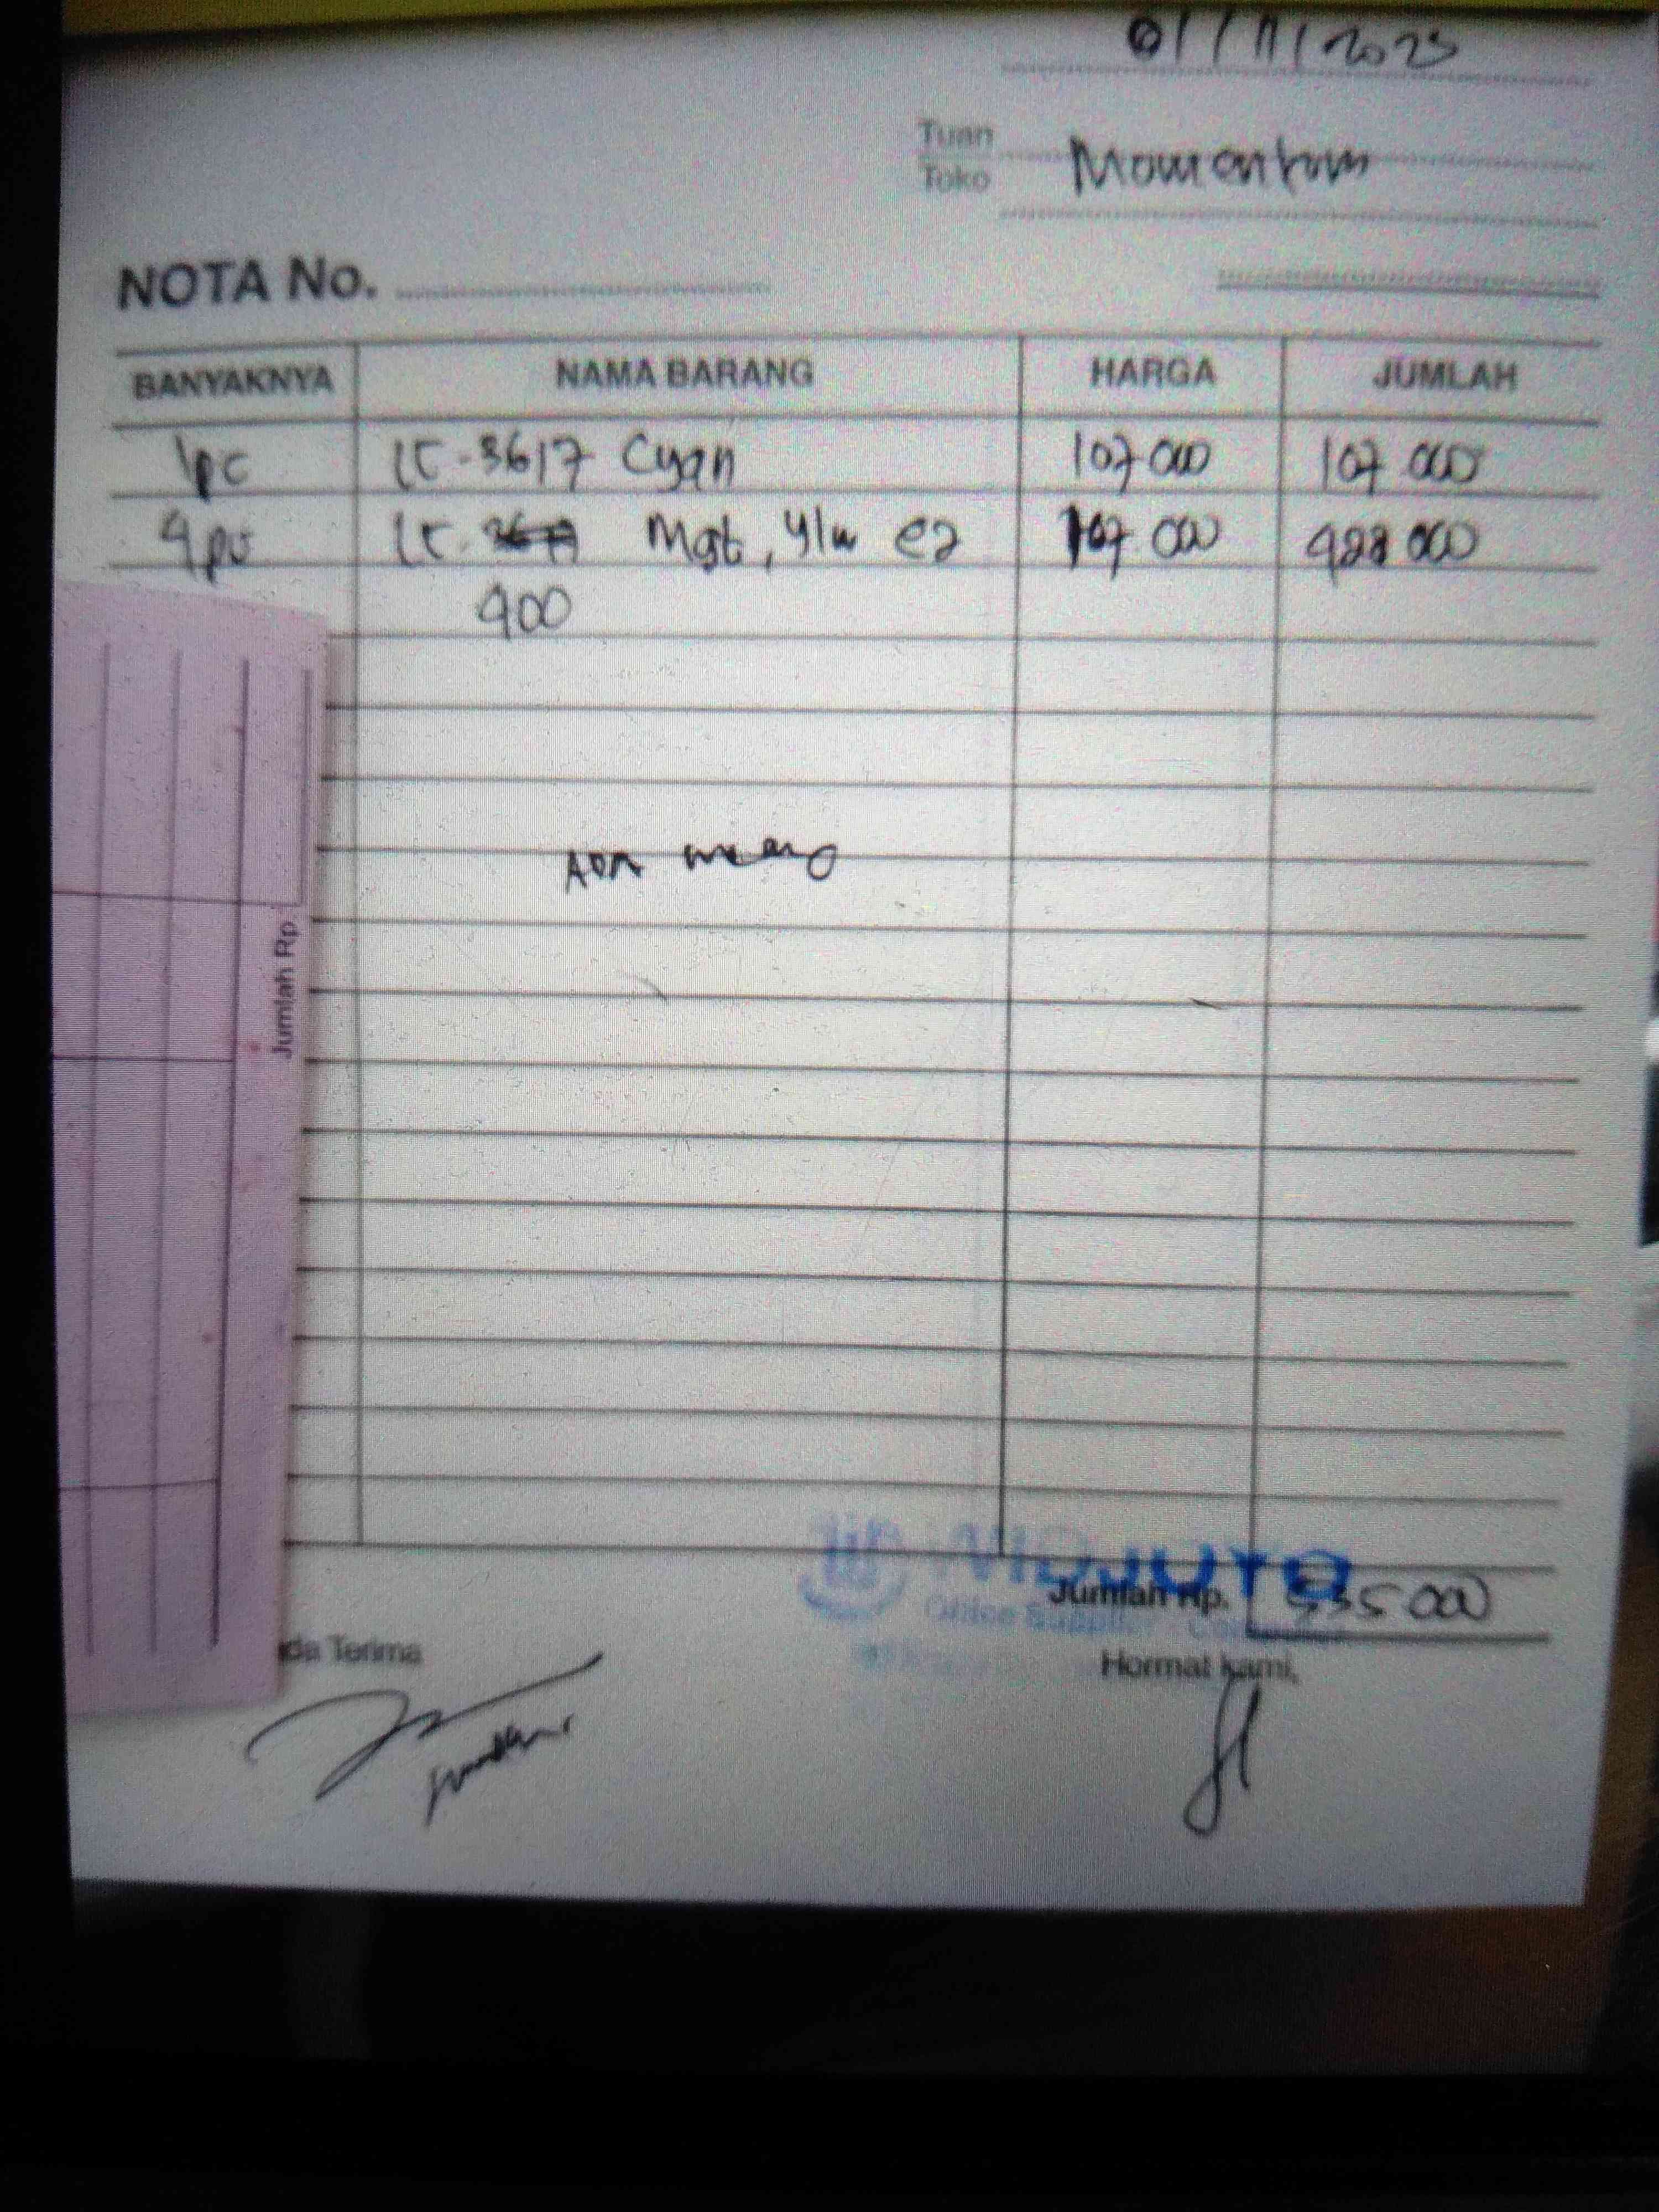 01/11/2023
Tuan
Toko Momentum
NOTA No.
BANYAKNYA NAMA BARANG HARGA JUMLAH
1pc LC-3617 Cyan 107 000 107 000
4pcs LC. Mgt, ylw @2 107 000 428 000
400
Jumlah Rp
MOJUTO
Office Supplies
Jumlah Rp. 535 000
da Terima
Hormat kami,